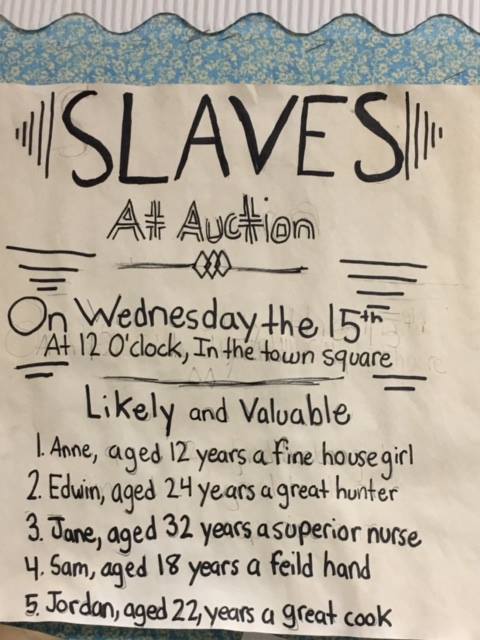 SLAVES
At Auction
On Wednesday the 15th
At 12 O'clock, In the town square
Likely and Valuable
1. Anne, aged 12 years a fine house girl
2. Edwin, aged 24 years a great hunter
3. Jane, aged 32 years a superior nurse
4. Sam, aged 18 years a feild hand
5. Jordan, aged 22, years a great cook